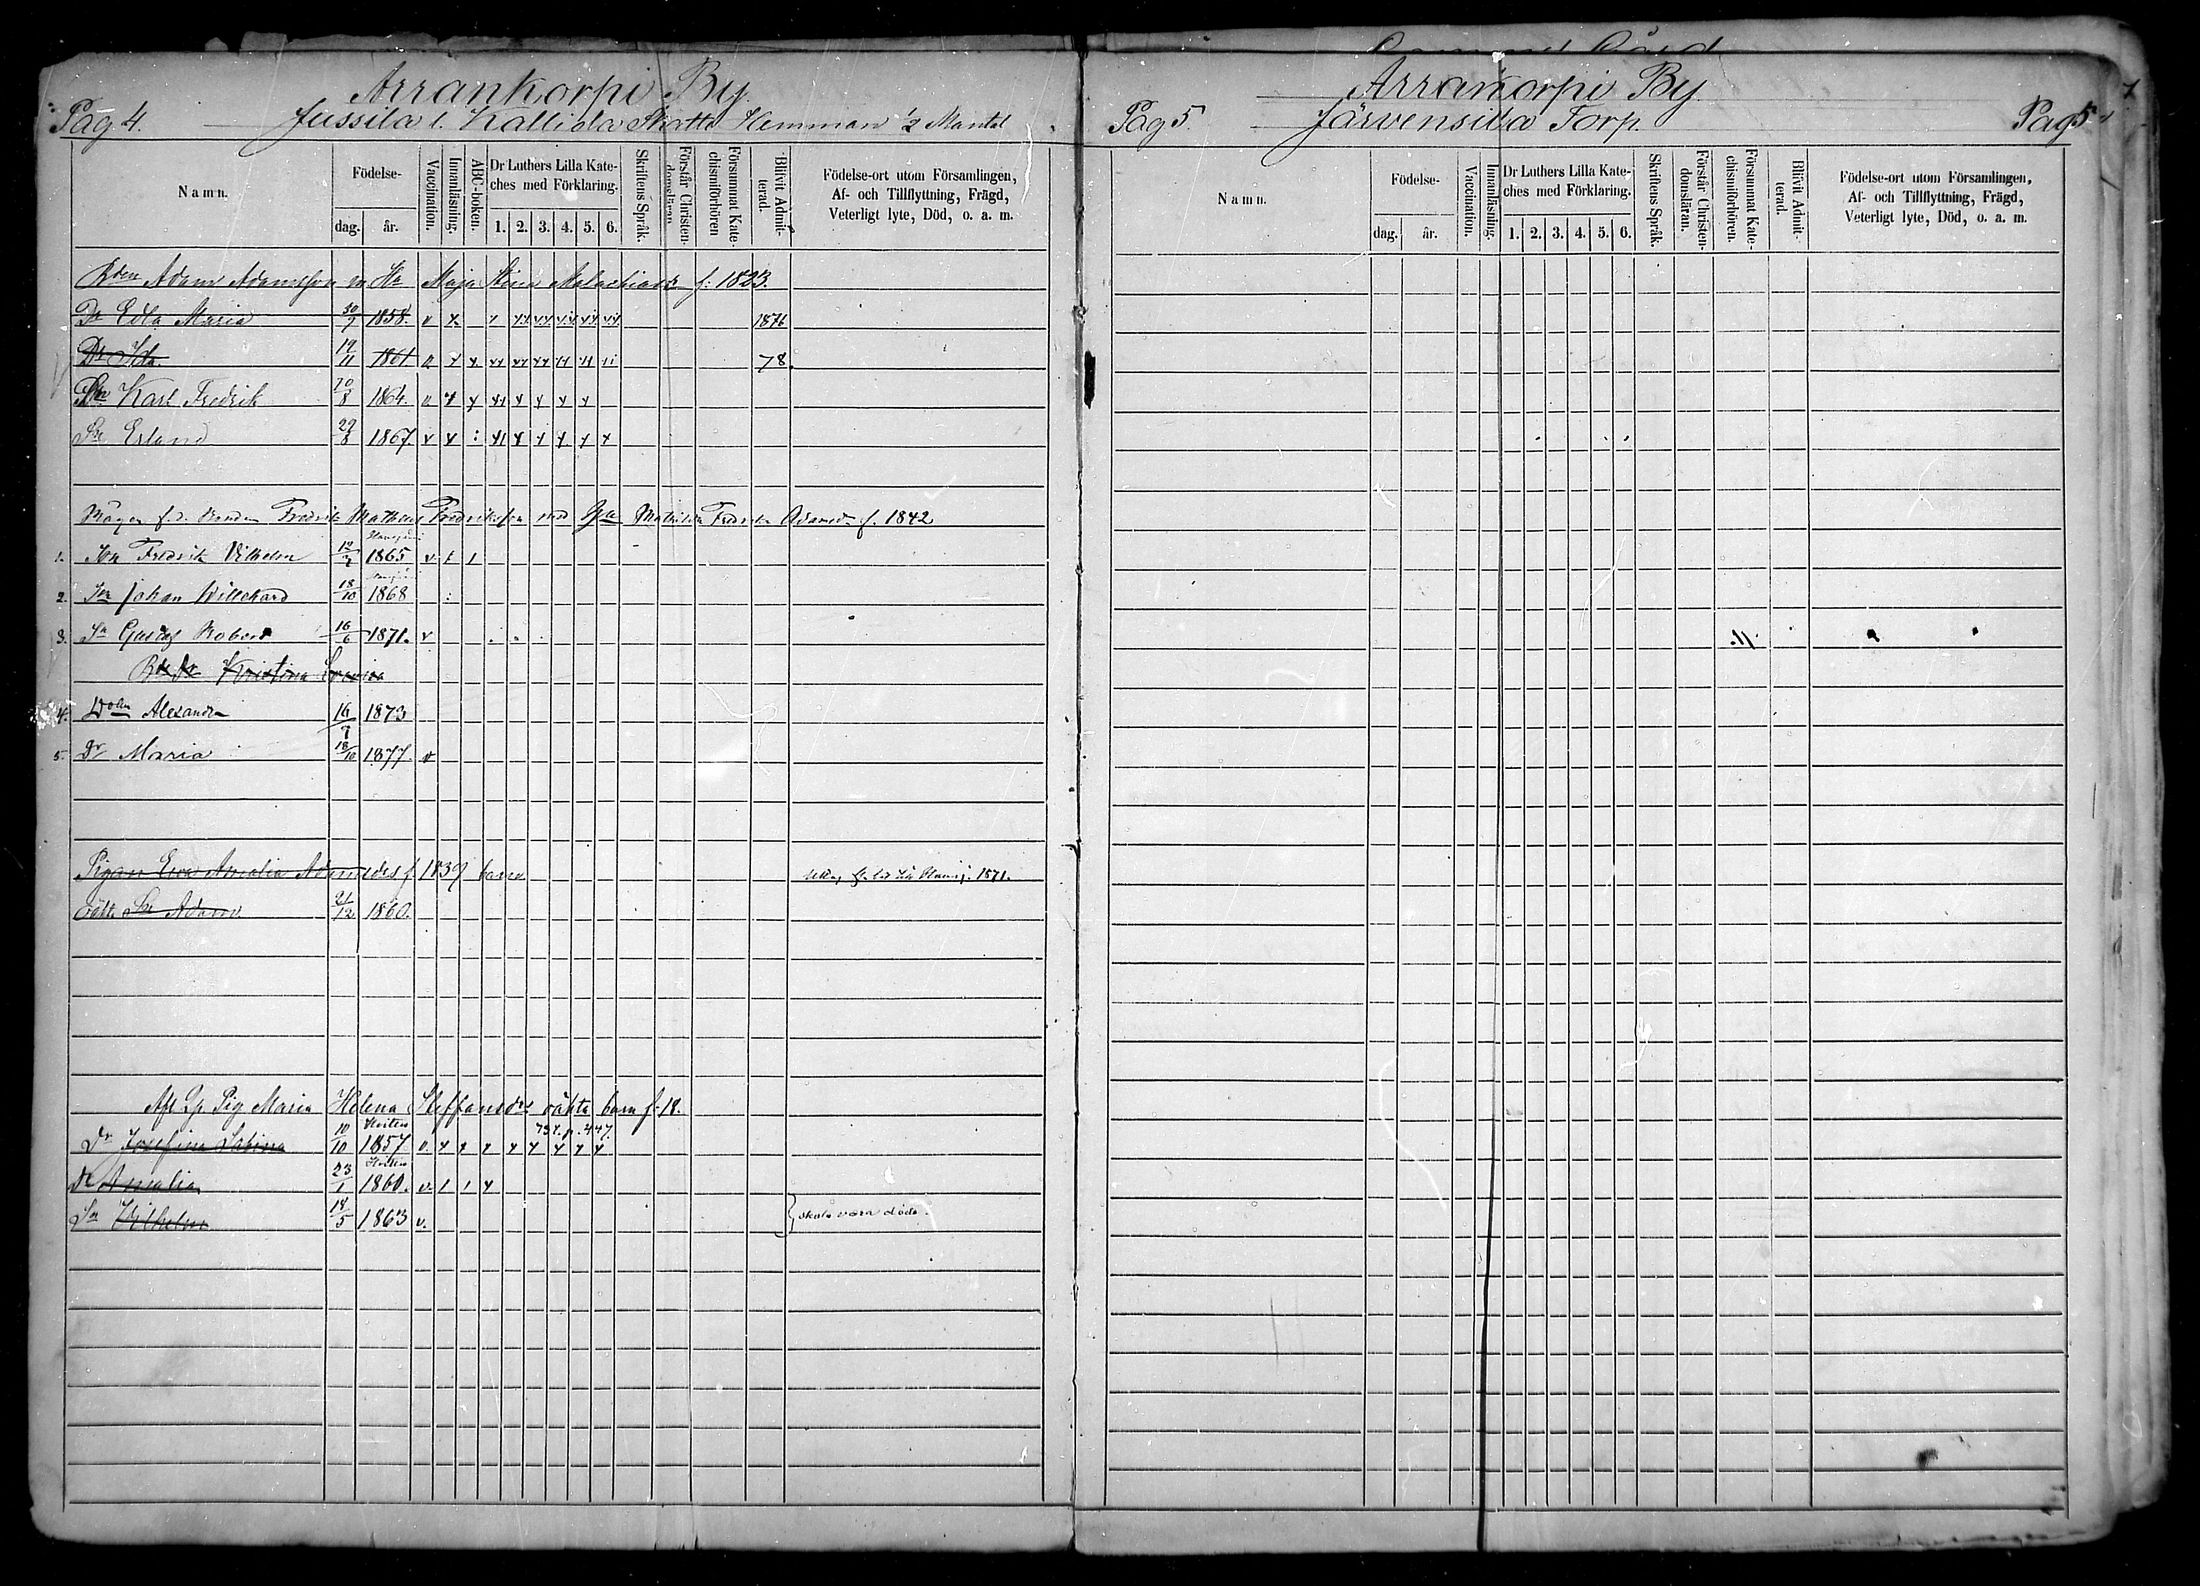 Arrankorpi By
Pag 4. Jussila l. Kallida Skatte Hemman 1/2 Mantal
Namn. Födelse- dag. år. Vaccination. Innanläsning. ABC-boken. Dr Luthers Lilla Kateches med Förklaring. 1. 2. 3. 4. 5. 6. Skriftens Språk. Förstår Christendomsläran. Försummat Katechismiförhören Blifvit Admitterad. Födelse-ort utom Församlingen, Af- och Tillflyttning, Frägd, Veterligt lyte, Död, o. a. m.
Bden Adam Adamsson m Hu Maja Stina Malachiasdr f. 1823.
Dr Edla Maria 30/9 1858. 1876
Dr Ida. 19/11 1861 78.
Sn Karl Fredrik 20/8 1864.
Sn Erland 29/8 1867.
Mågen f.d. Bonden Fredrik Mathias Fredriksson med Hu Mathilda Fredrika Adamsdr f. 1842
1. Sn Fredrik Vilhelm 12/7 1865
2. Sn Johan Willehard 18/10 1868
3. Sn Gustaf Robert 16/6 1871.
Kristina Lovisa
4. Alexandra 16/9 1873
5. Dr Maria 18/10 1877.
Pigan Eva Amalia Adamsdr f. 1839 barn 1871.
oäkta Sn Adam 21/12 1860.
Afl. Pig Maria Helena Steffansdr oäkta barn f. 18.
Dr Josefina Sabina 10/10 1857 p. 447.
Dr Amalia 23/1 1860.
Sn Wilhelm 14/5 1863 skola vara döda.
Arrankorpi By
Pag 5. Järvensivu Torp. Pag 5
Namn. Födelse- dag. år. Vaccination. Innanläsning. Dr Luthers Lilla Kateches med Förklaring. 1. 2. 3. 4. 5. 6. Skriftens Språk. Förstår Christendomsläran. Försummat Katechismiförhören. Blifvit Admitterad. Födelse-ort utom Församlingen, Af- och Tillflyttning, Frägd, Veterligt lyte, Död, o. a. m.